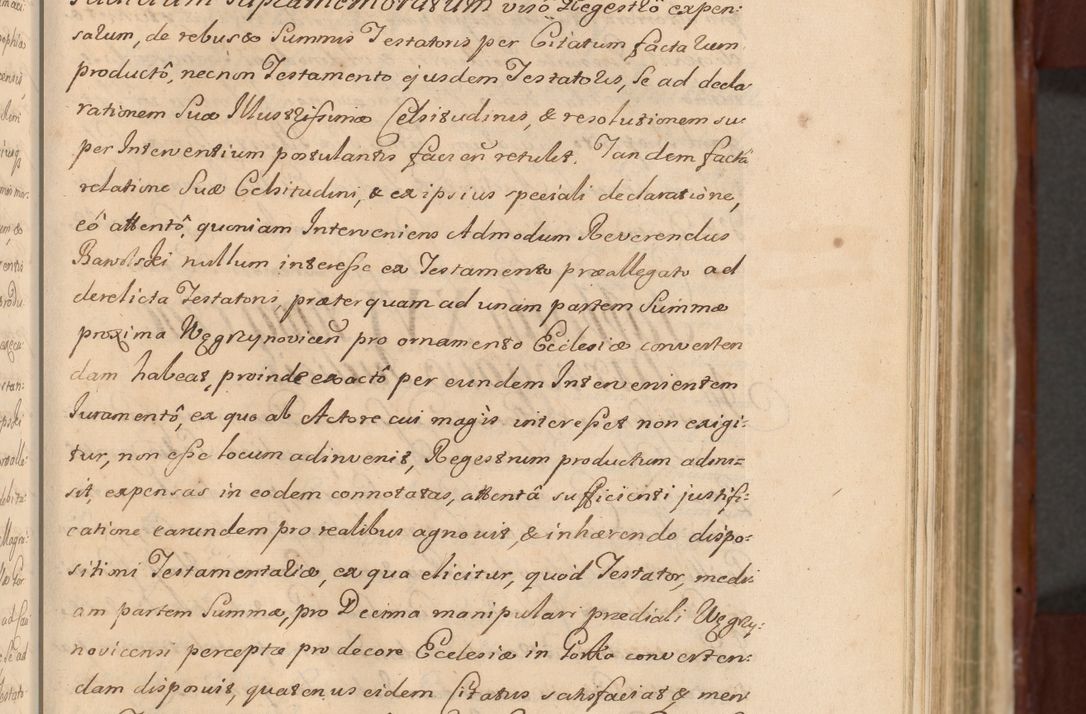 Judicium supramemoratum visô Regestrô expen:
sarum, de rebus & Summis Testatoris per Citatum factarum
productô, necnon Testamento ejusdem Testatoris, se ad decla
rationem Suæ Illustrissimæ Celsitudinis, & resolutionem su
per Interventium postulantis facien̄ retulit. Tandem factâ
relatione Suæ Celsitudini, & ex ipsius speciali declaratione,
eô attentô, quoniam Interveniens Admodum Reverendus
Bawolski nullum interesse ex Testamento præallegato ad
derelicta Testatoris, præterquam ad unam partem Summæ
proxima Węgrzynovicen̄ pro ornamento Ecclesiæ converten
dam habeat, proinde exactô per eundem Intervenientem
Juramentô, ex quo ab Actore cui magis interesset non exigi:
tur, non esse locum adinvenit, Regestrum productum admi=
sit, expensas in eodem connotatas, attentâ sufficienti justifi:
catione earundem pro realibus agnovit, & inhærendo dispo:
sitioni Testamentaliæ, ex qua elicitur, quod Testator, medi
am partem Summæ, pro Decima manipulari prædiali Węgrzy:
novicensi perceptæ pro decore Ecclesiæ in Gorka converten:
dam disposuit, quatenus eidem Citatus satisfaciat & men